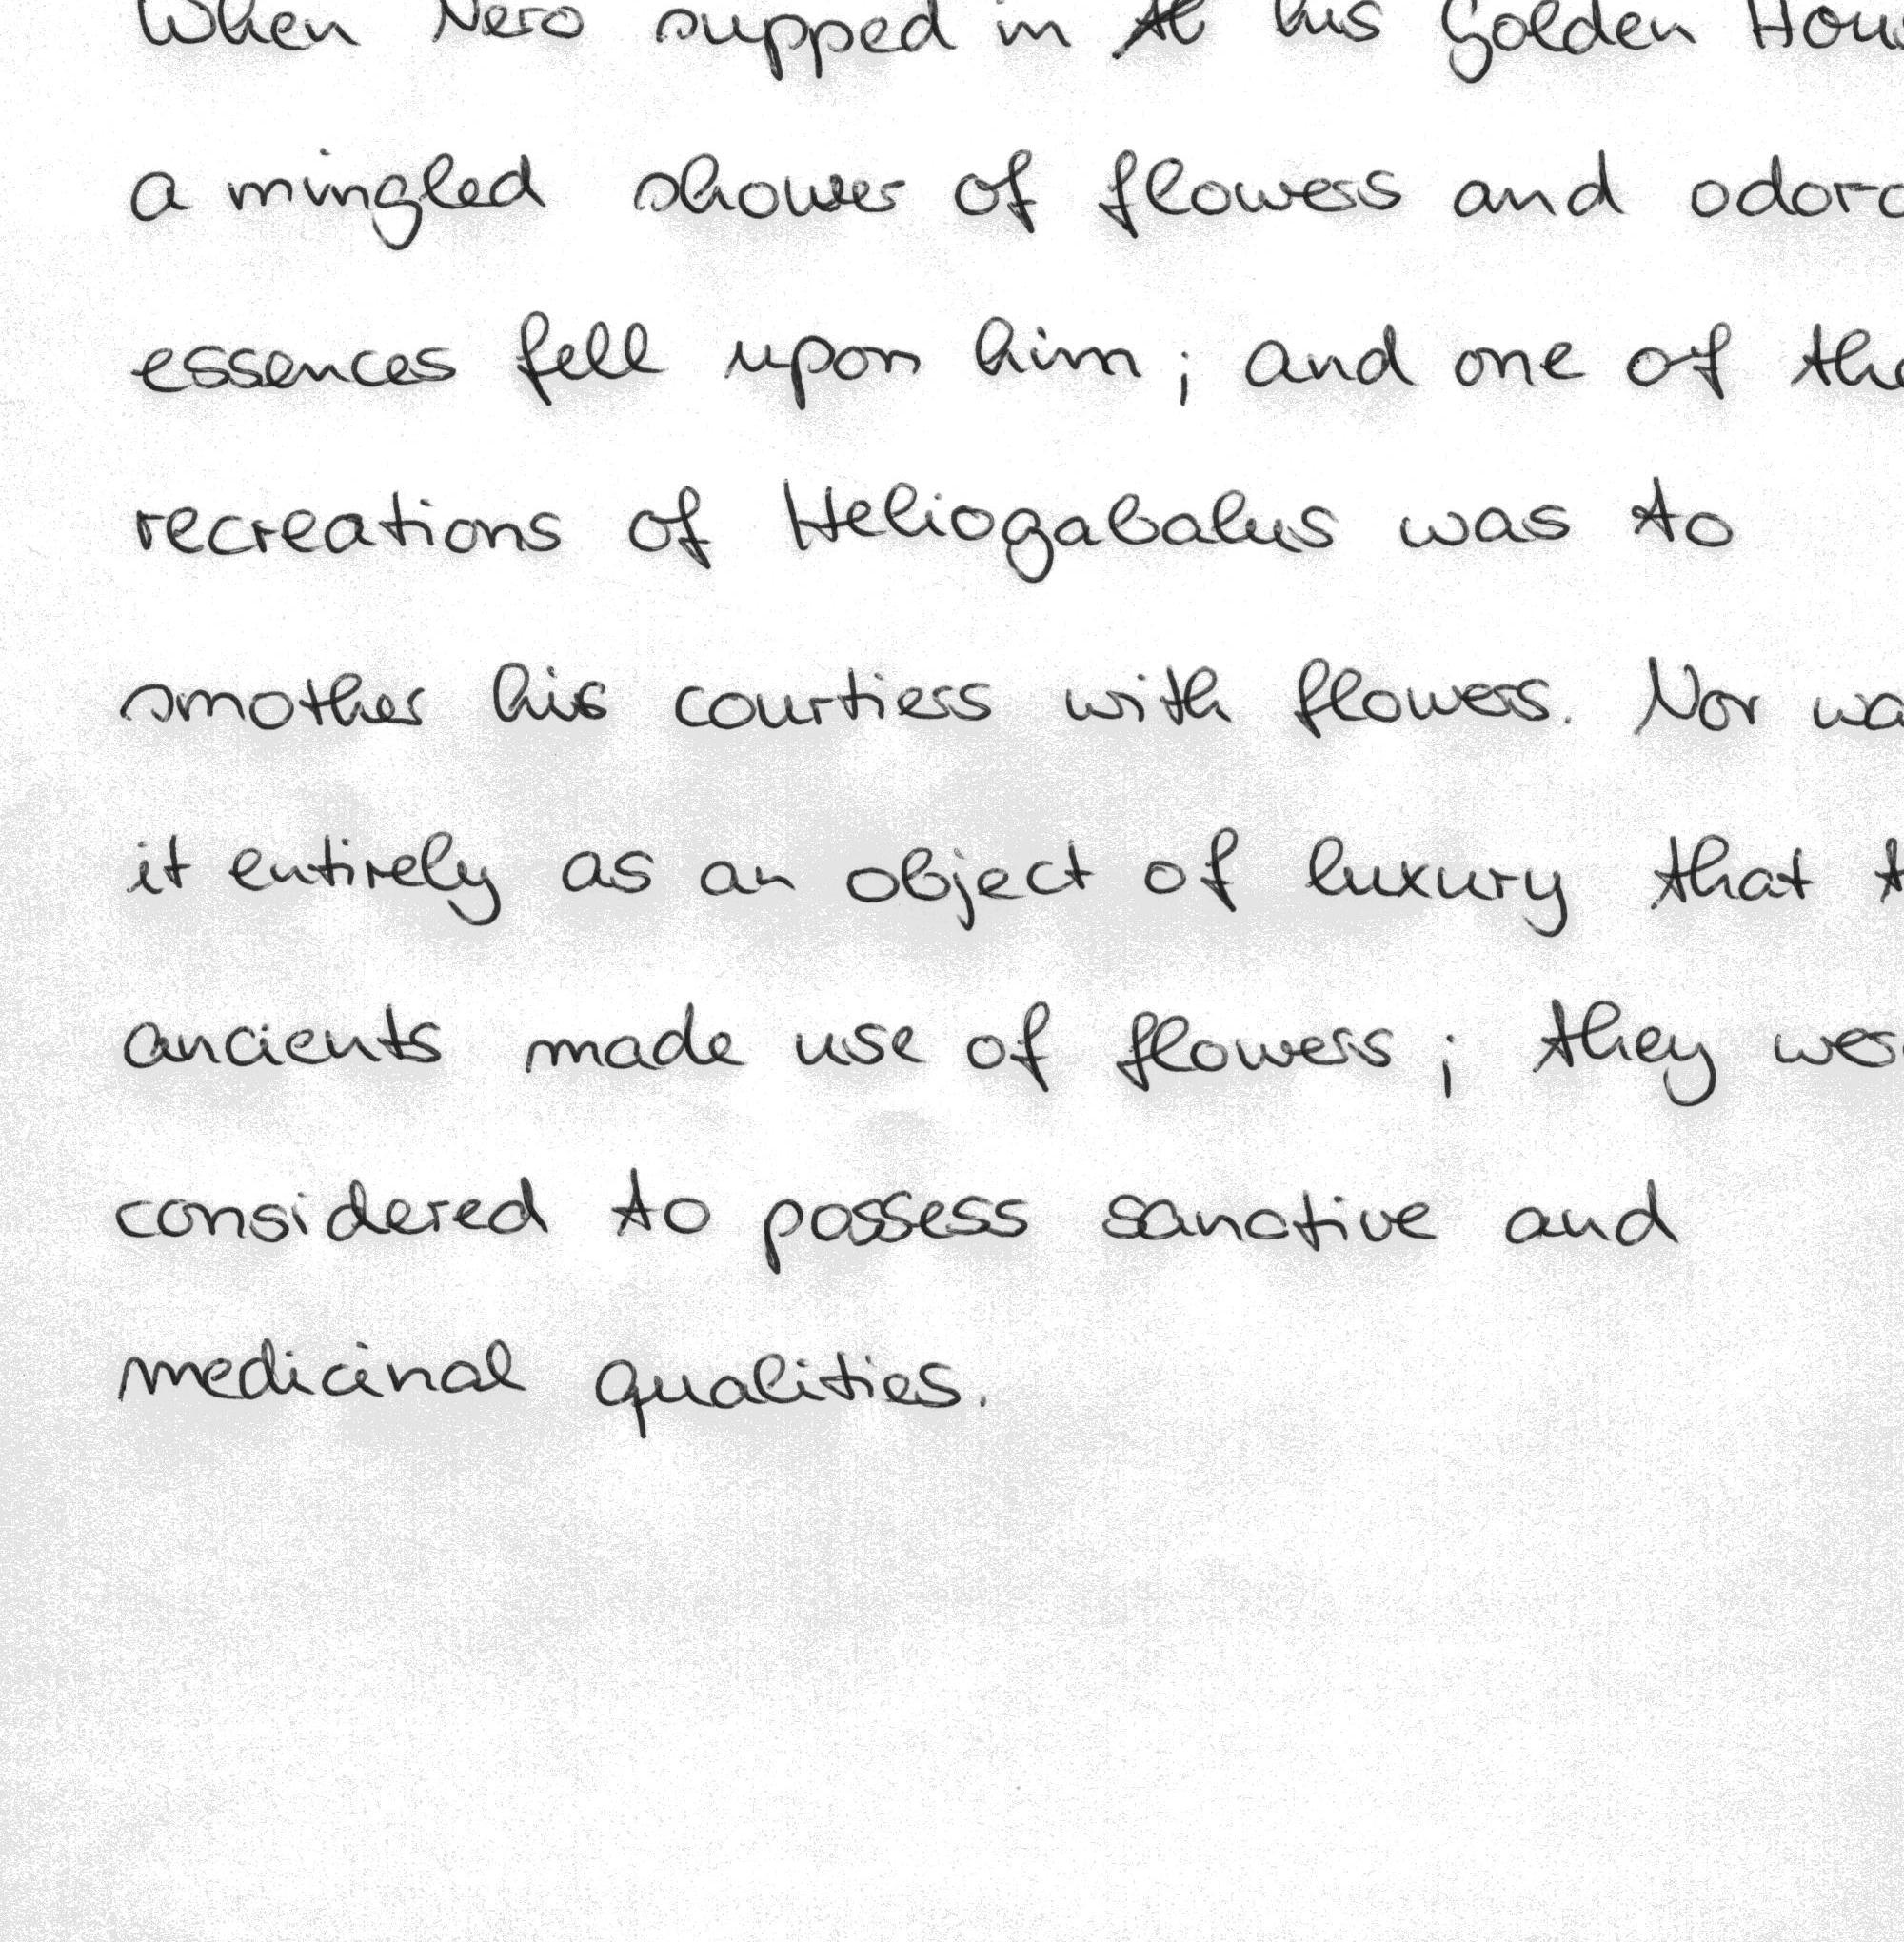 When Nero supped in his Golden Hous
a mingled shower of flowers and odoro
essences fell upon him; and one of the
recreations of Heliogabalus was to
smother his courtiers with flowers. Nor wa
it entirely as an object of luxury that t
ancients made use of flowers; they wer
considered to possess sanative and
medicinal qualities.